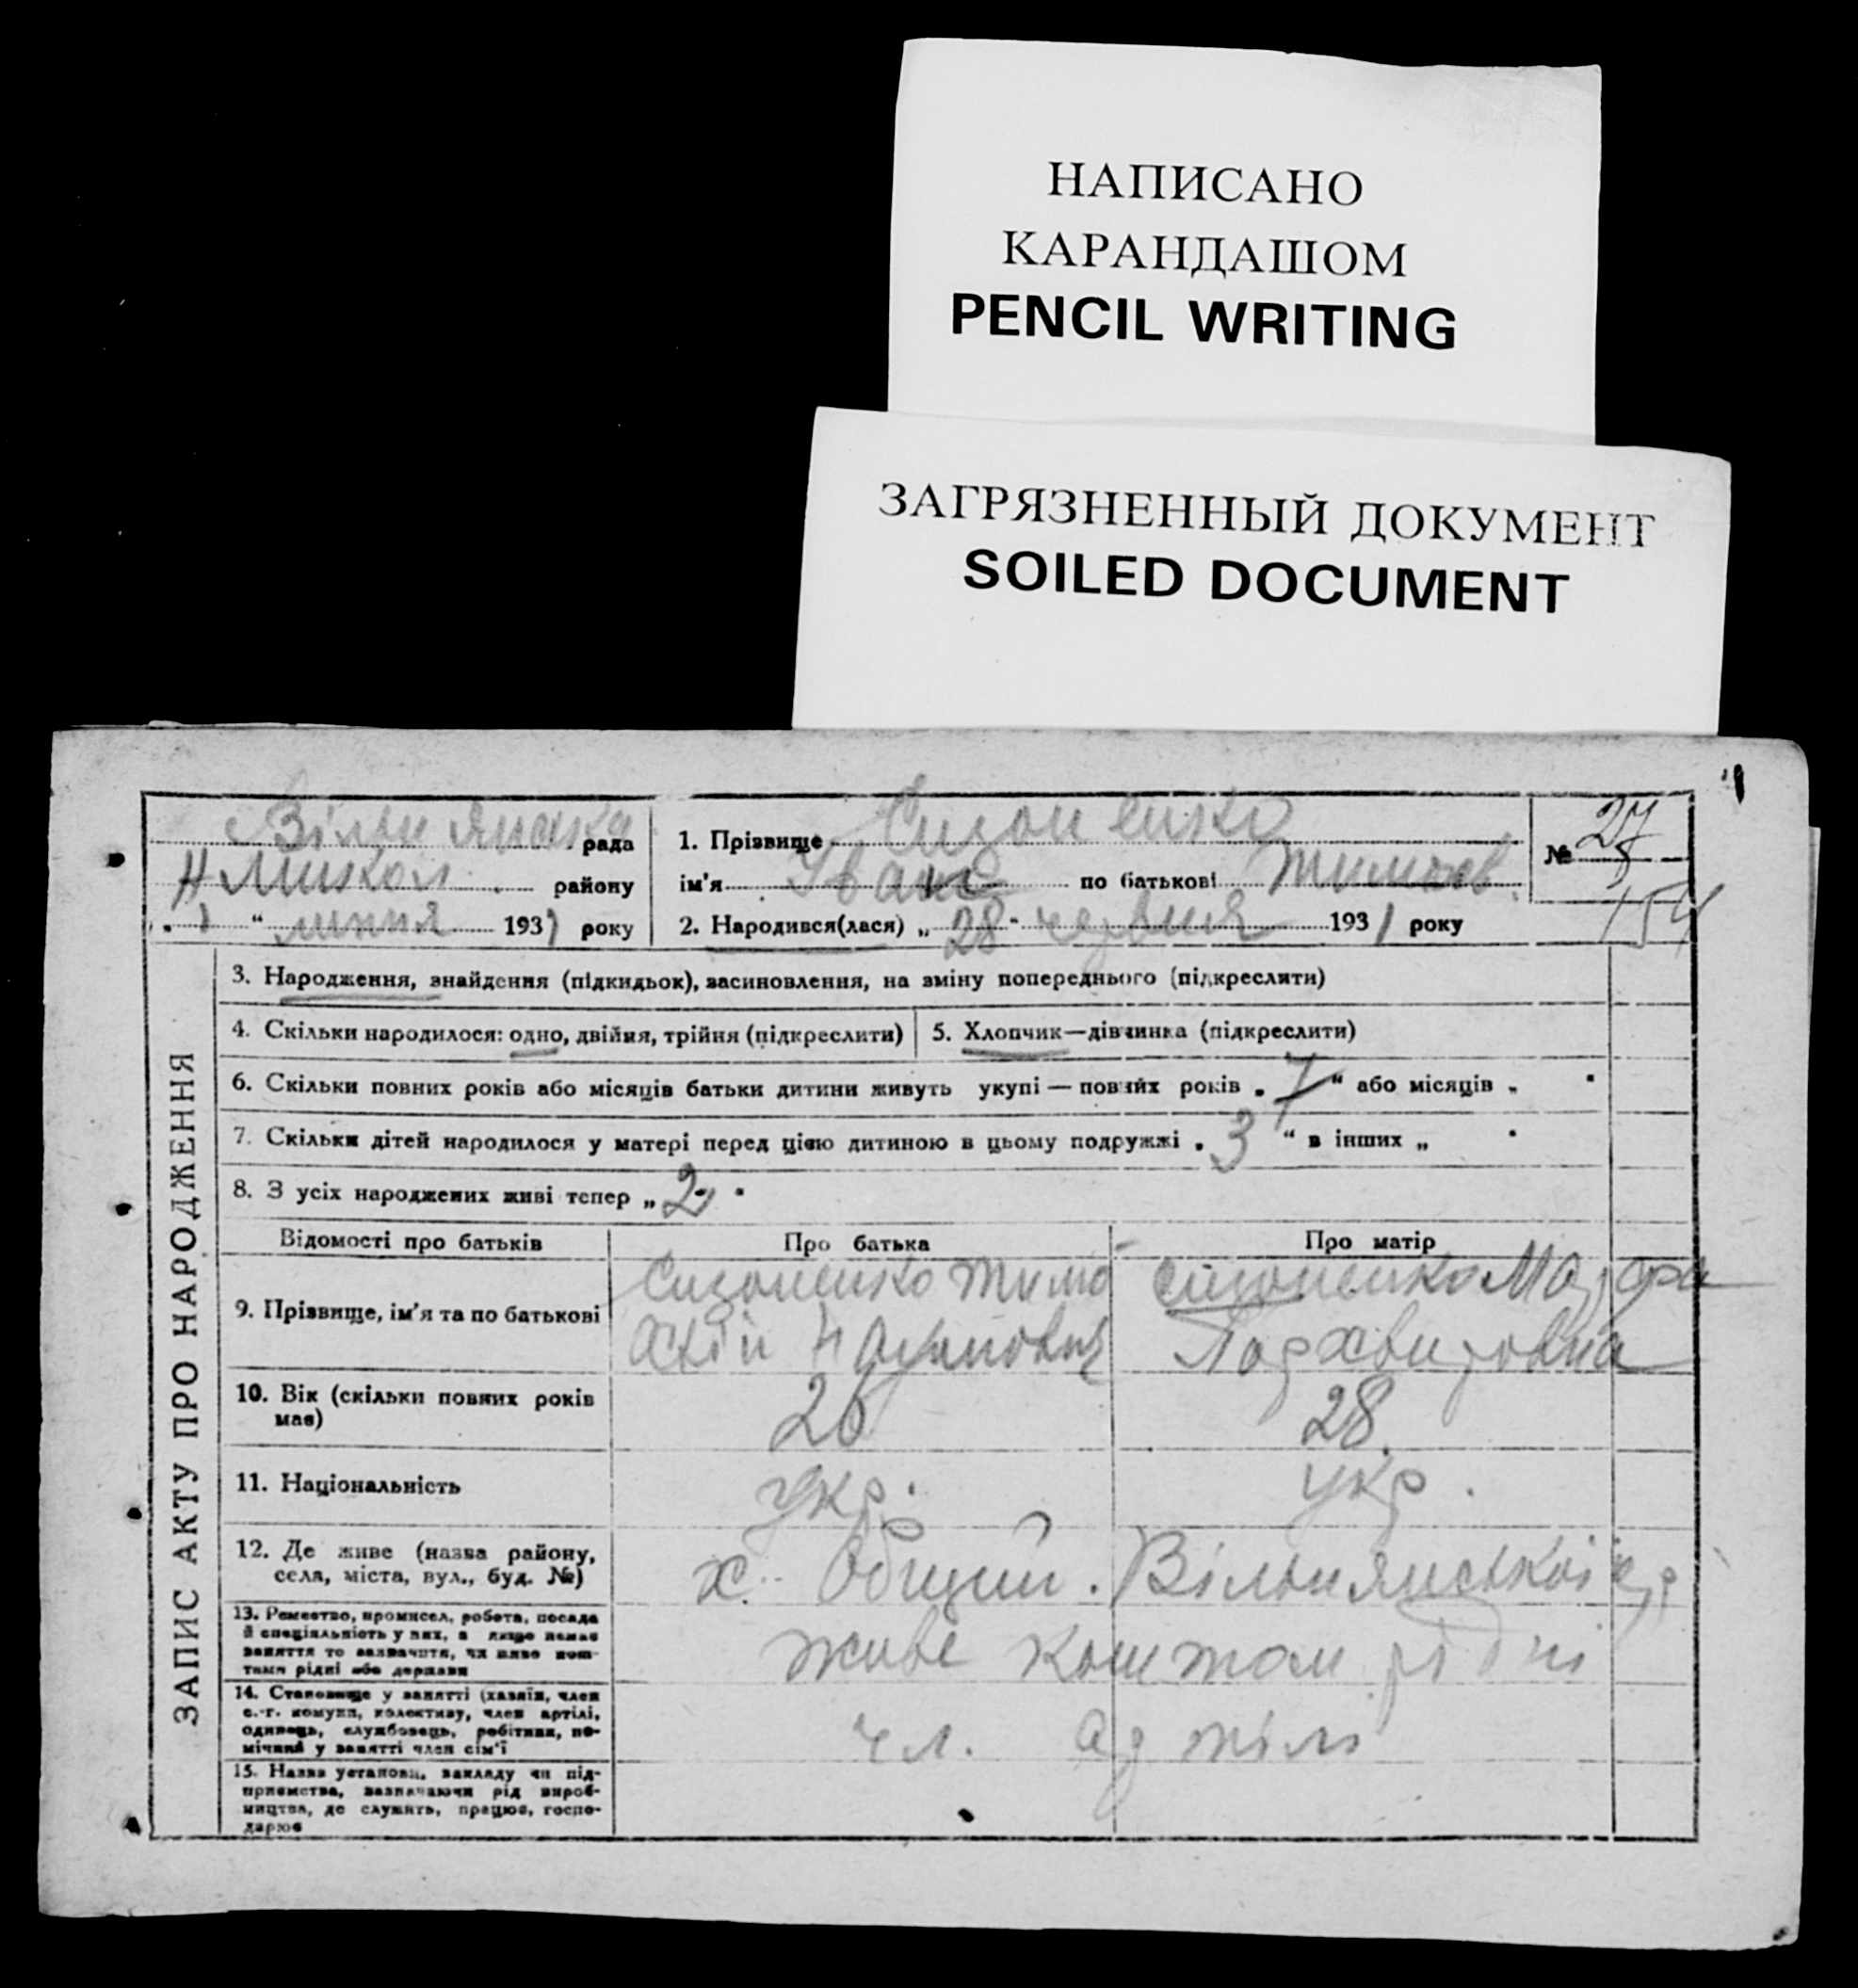 НАПИСАНО
КАРАНДАШОМ
PENCIL WRITING
ЗАГРЯЗНЕННЫЙ ДОКУМЕНТ
SOILED DOCUMENT
1
Вільнянська рада
Н Микол. району
" липня 1931 року
1. Прізвище Сизоненко
ім'я Іван по батькові Тимохв.
2. Народився(лася) „ 28 " червня 1931 року
№ 27
154
ЗАПИС АКТУ ПРО НАРОДЖЕННЯ
3. Народження, знайдення (підкидьок), засиновлення, на зміну попереднього (підкреслити)
4. Скільки народилося: одно, двійня, трійня (підкреслити)
5. Хлопчик—дівчинка (підкреслити)
6. Скільки повних років або місяців батьки дитини живуть укупі — повних років „ 7 " або місяців „ "
7. Скільки дітей народилося у матері перед цією дитиною в цьому подружжі „ 3 " в інших „ "
8. З усіх народжених живі тепер „ 2 "
Відомості про батьків
Про батька
Про матір
9. Прізвище, ім'я та по батькові
Сизоненко Тимо
Сизоненко Марфа
Пархвировна
10. Вік (скільки повних років має)
26
28
11. Національність
укр.
укр.
12. Де живе (назва району,
села, міста, вул., буд. №)
х. Общий. Вільнянської
13. Ремество, промисел, робота, посада
й спеціяльність у них, а якщо немає
заняття то зазначити, чи живе кош-
тами рідні або держави
живе коштом рідні
14. Становище у занятті (хазяїн, член
с.-г. комуни, колективу, член артілі,
одинець, службовець, робітник, по-
мічний у занятті член сім'ї
чл. артілі
15. Назва установи, закладу чи під-
приємства, зазначаючи рід вироб-
ництва, де служить, працює, госпо-
дарює